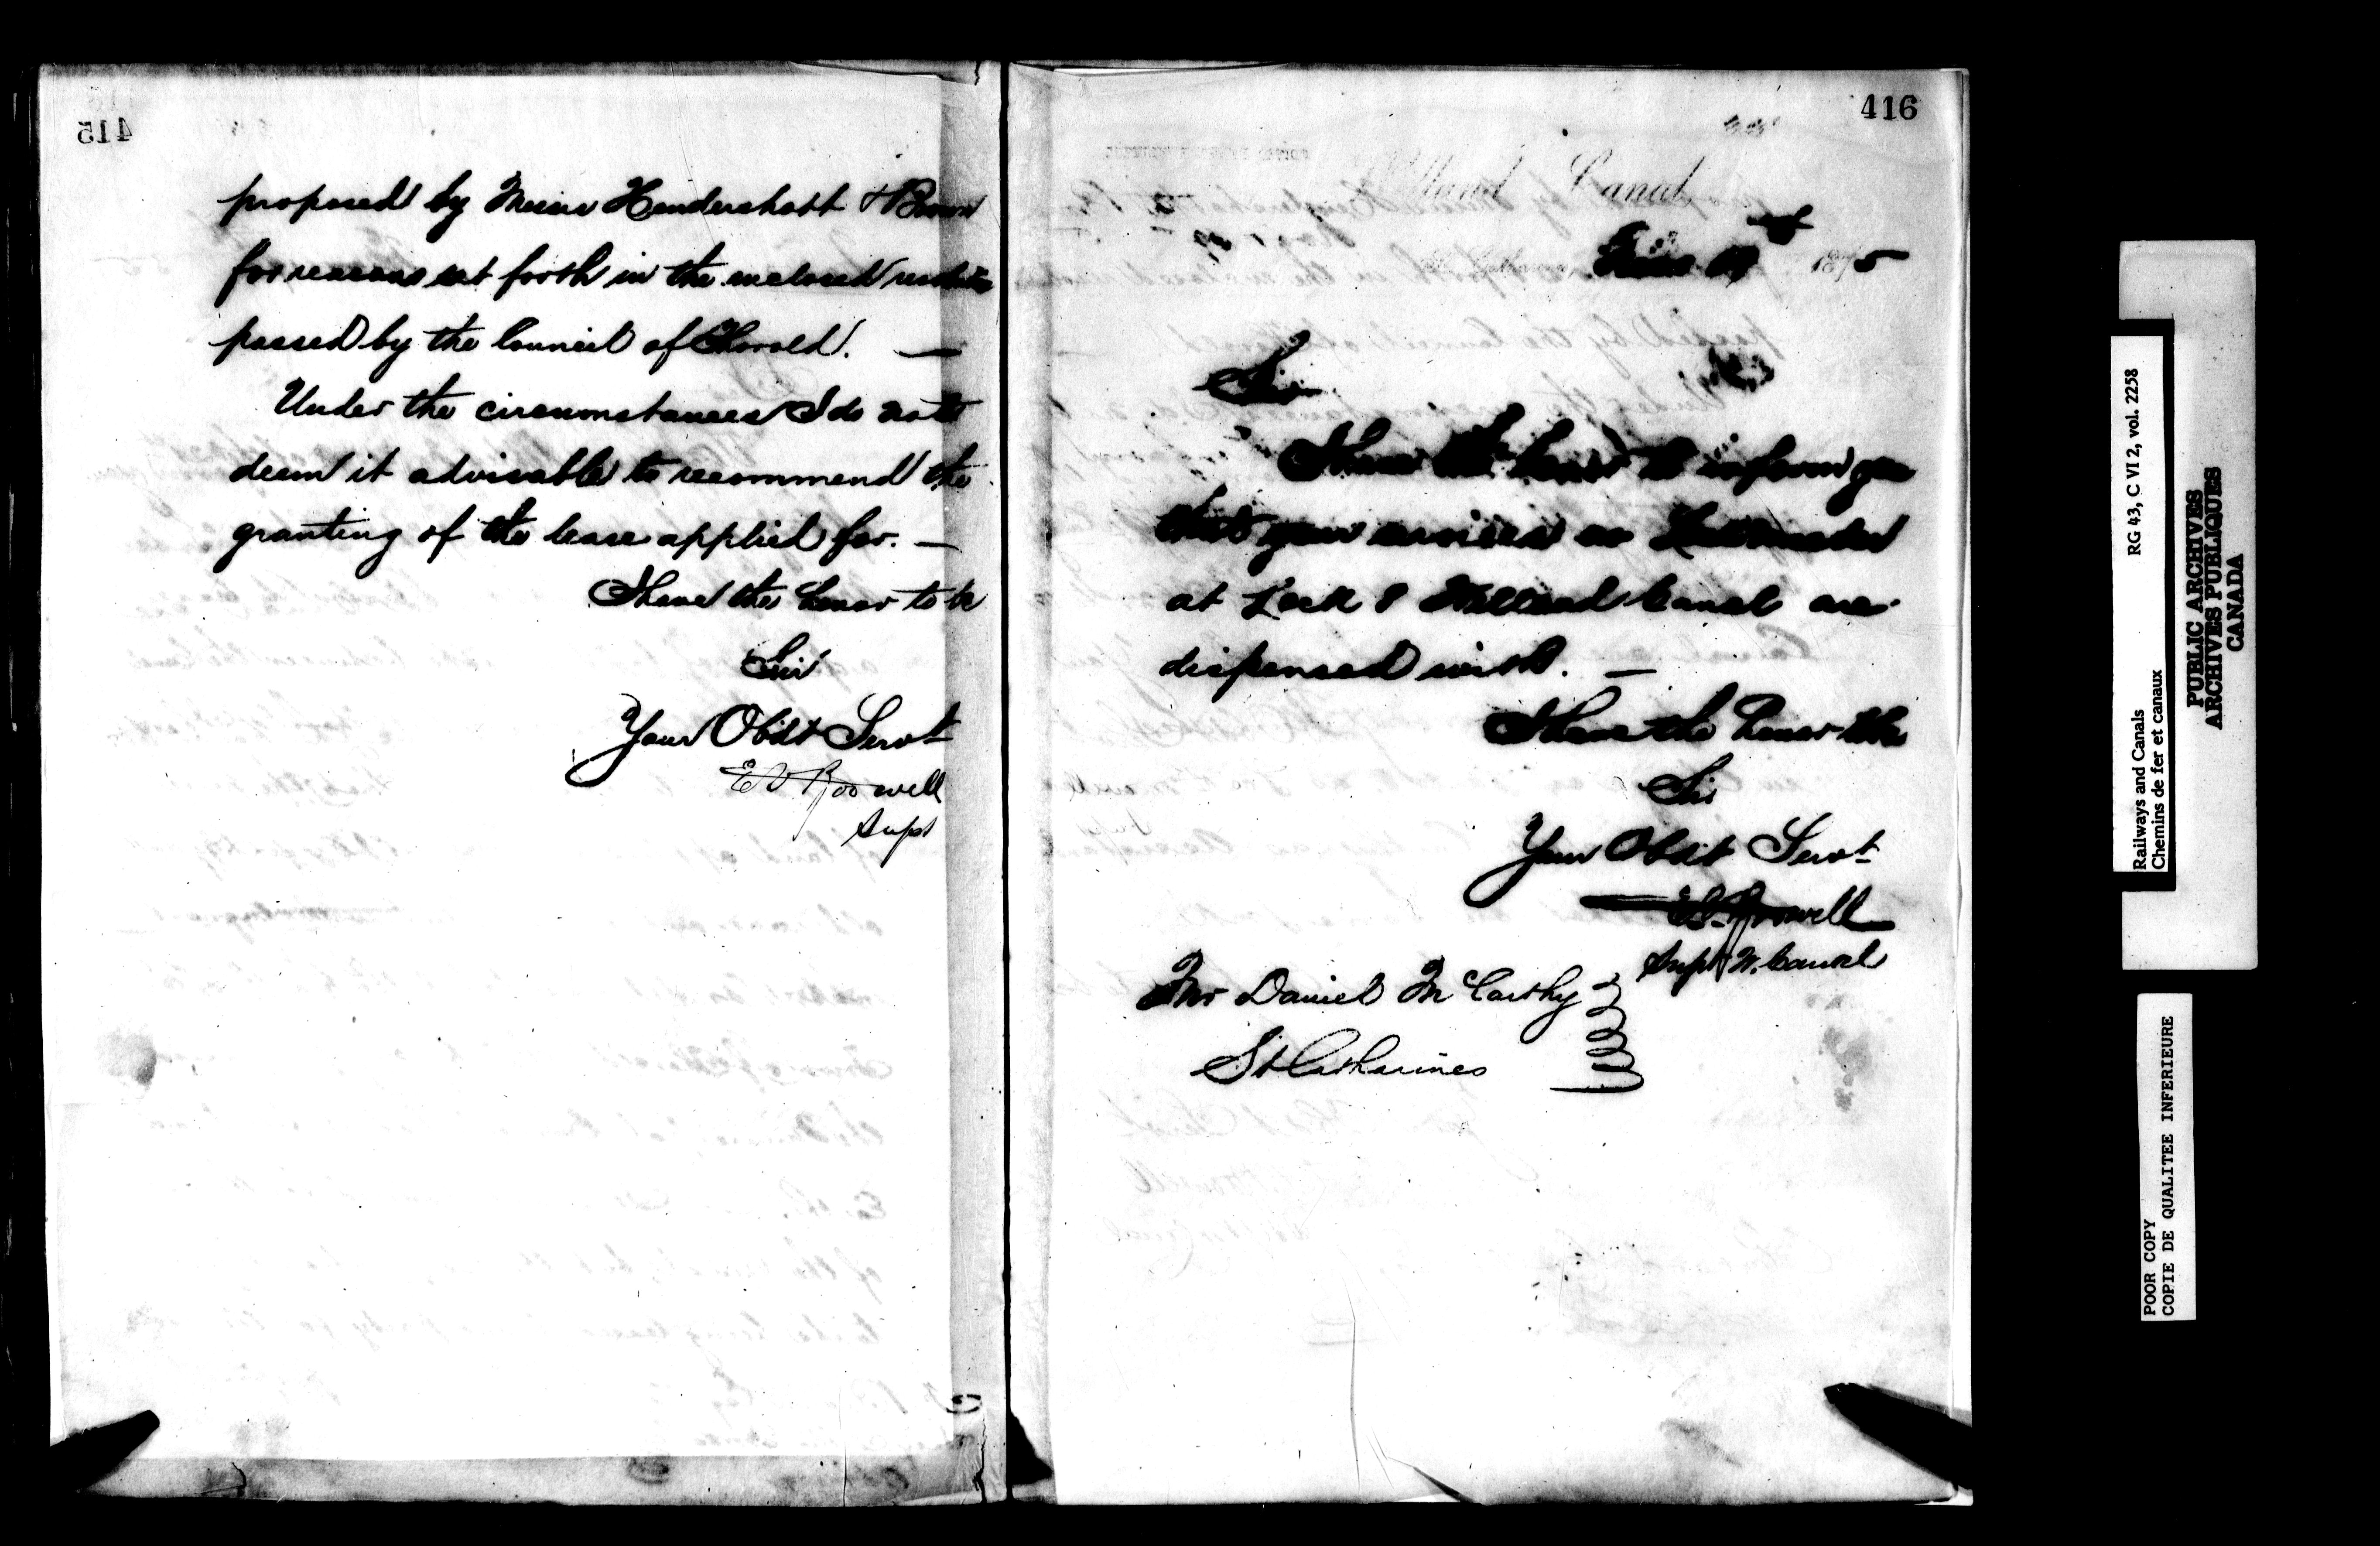 415
proposed by Messrs Hendershott & Brown
for reasons set forth in the enclosed resolution
passed by the Council of Thorold. —
Under the circumstances I do not
deem it advisable to recommend the
granting of the lease applied for. —
I have the honor to be
Sir
Your Obdt Servt
E V Bodwell
Supt
416
Welland Canal,
St. Catharines, 1875
Sir
I have the honor to inform you
that your services as Lockmaster
at Lock 8 Welland Canal are
dispensed with. —
I have the honor to be
Sir
Your Obdt Servt
E V Bodwell
Supt W. Canal
Mr Daniel McCarthy
St Catharines
RG 43, C VI 2, vol. 2258
Railways and Canals
Chemins de fer et canaux
PUBLIC ARCHIVES
ARCHIVES PUBLIQUES
CANADA
POOR COPY
COPIE DE QUALITEE INFERIEURE